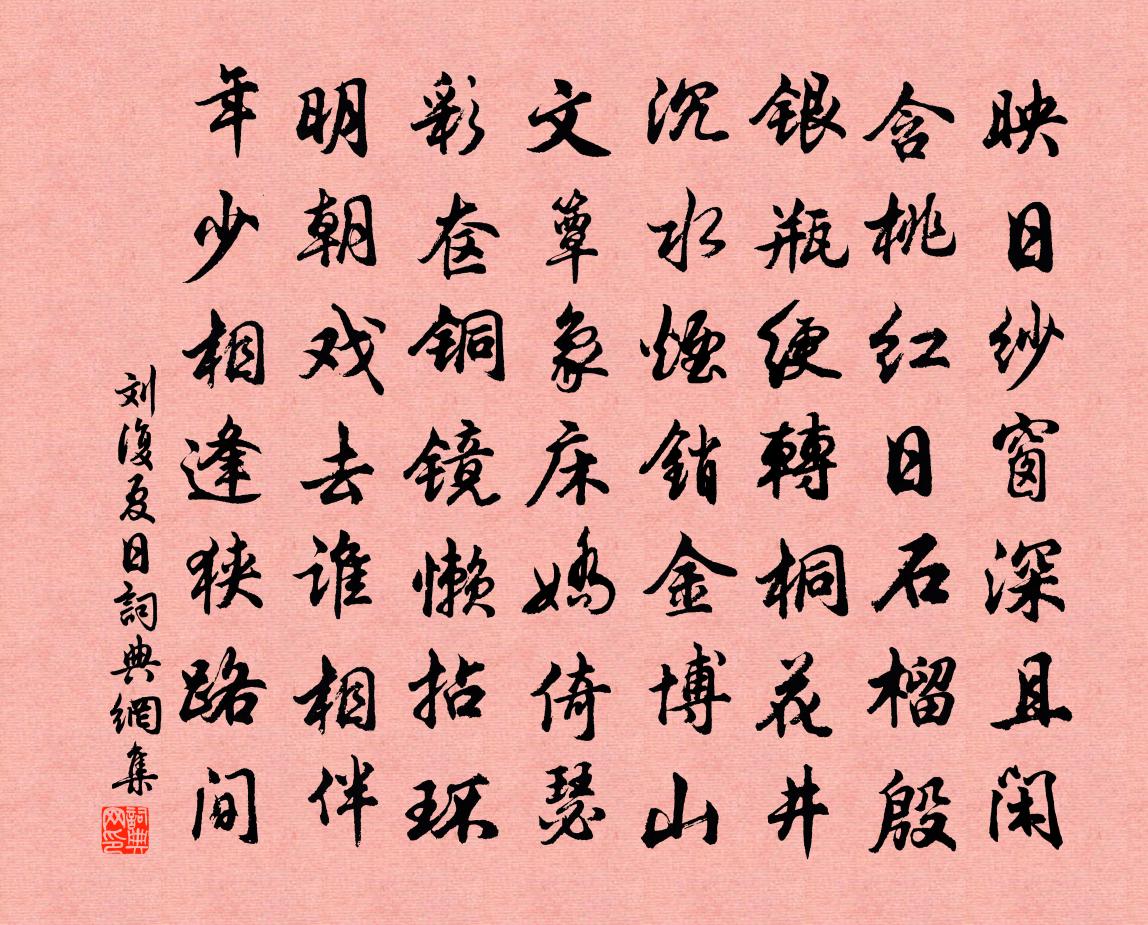 映日纱窗深且闲
含桃红日石榴殷
银瓶绠轉桐花井
沉水煙銷金博山
文簟象床娇倚瑟
彩奁铜镜懒拈环
明朝戏去谁相伴
年少相逢狭路间
刘復夏日詞典網集
詞典网印